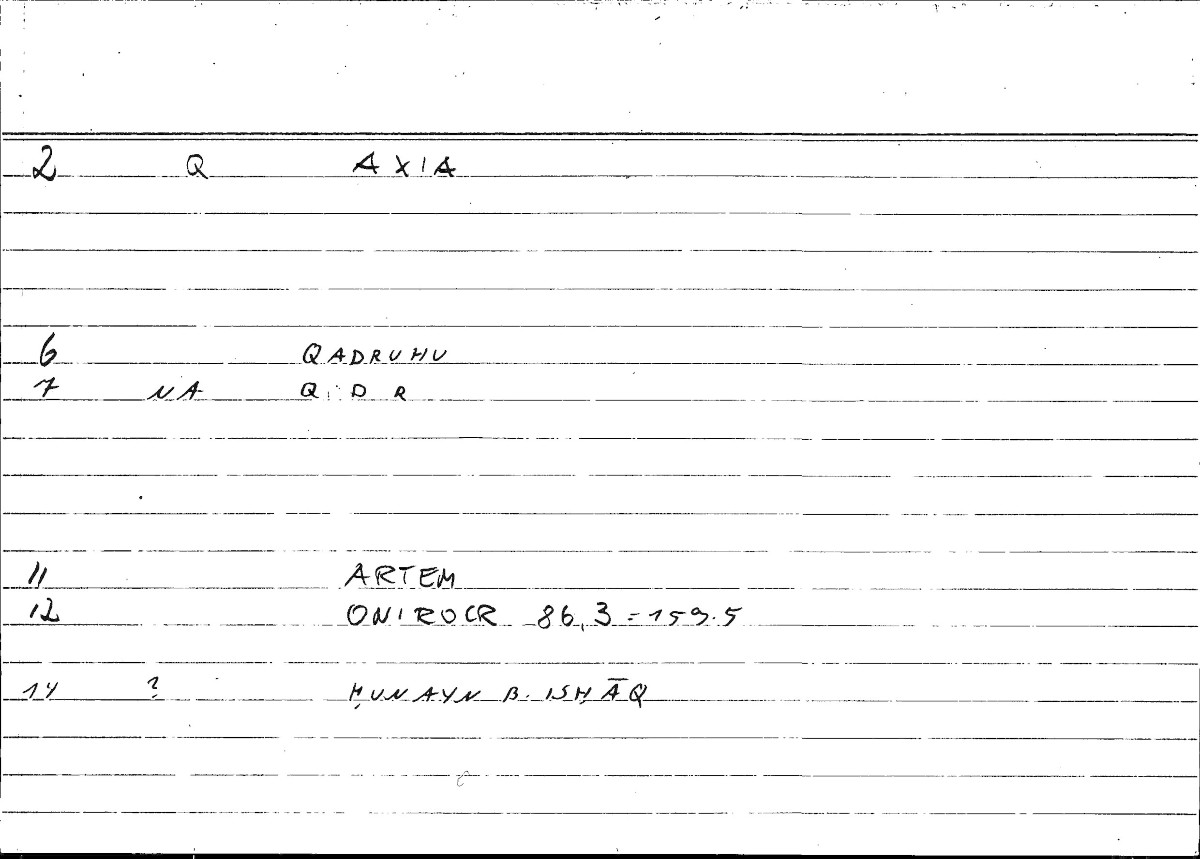 2 Q AXIA
6 QADRUHU
7 NA Q D R
11 ARTEM
12 ONIROCR 86,3=159.5
14 ? ḤUNAYN B. ISḤĀQ